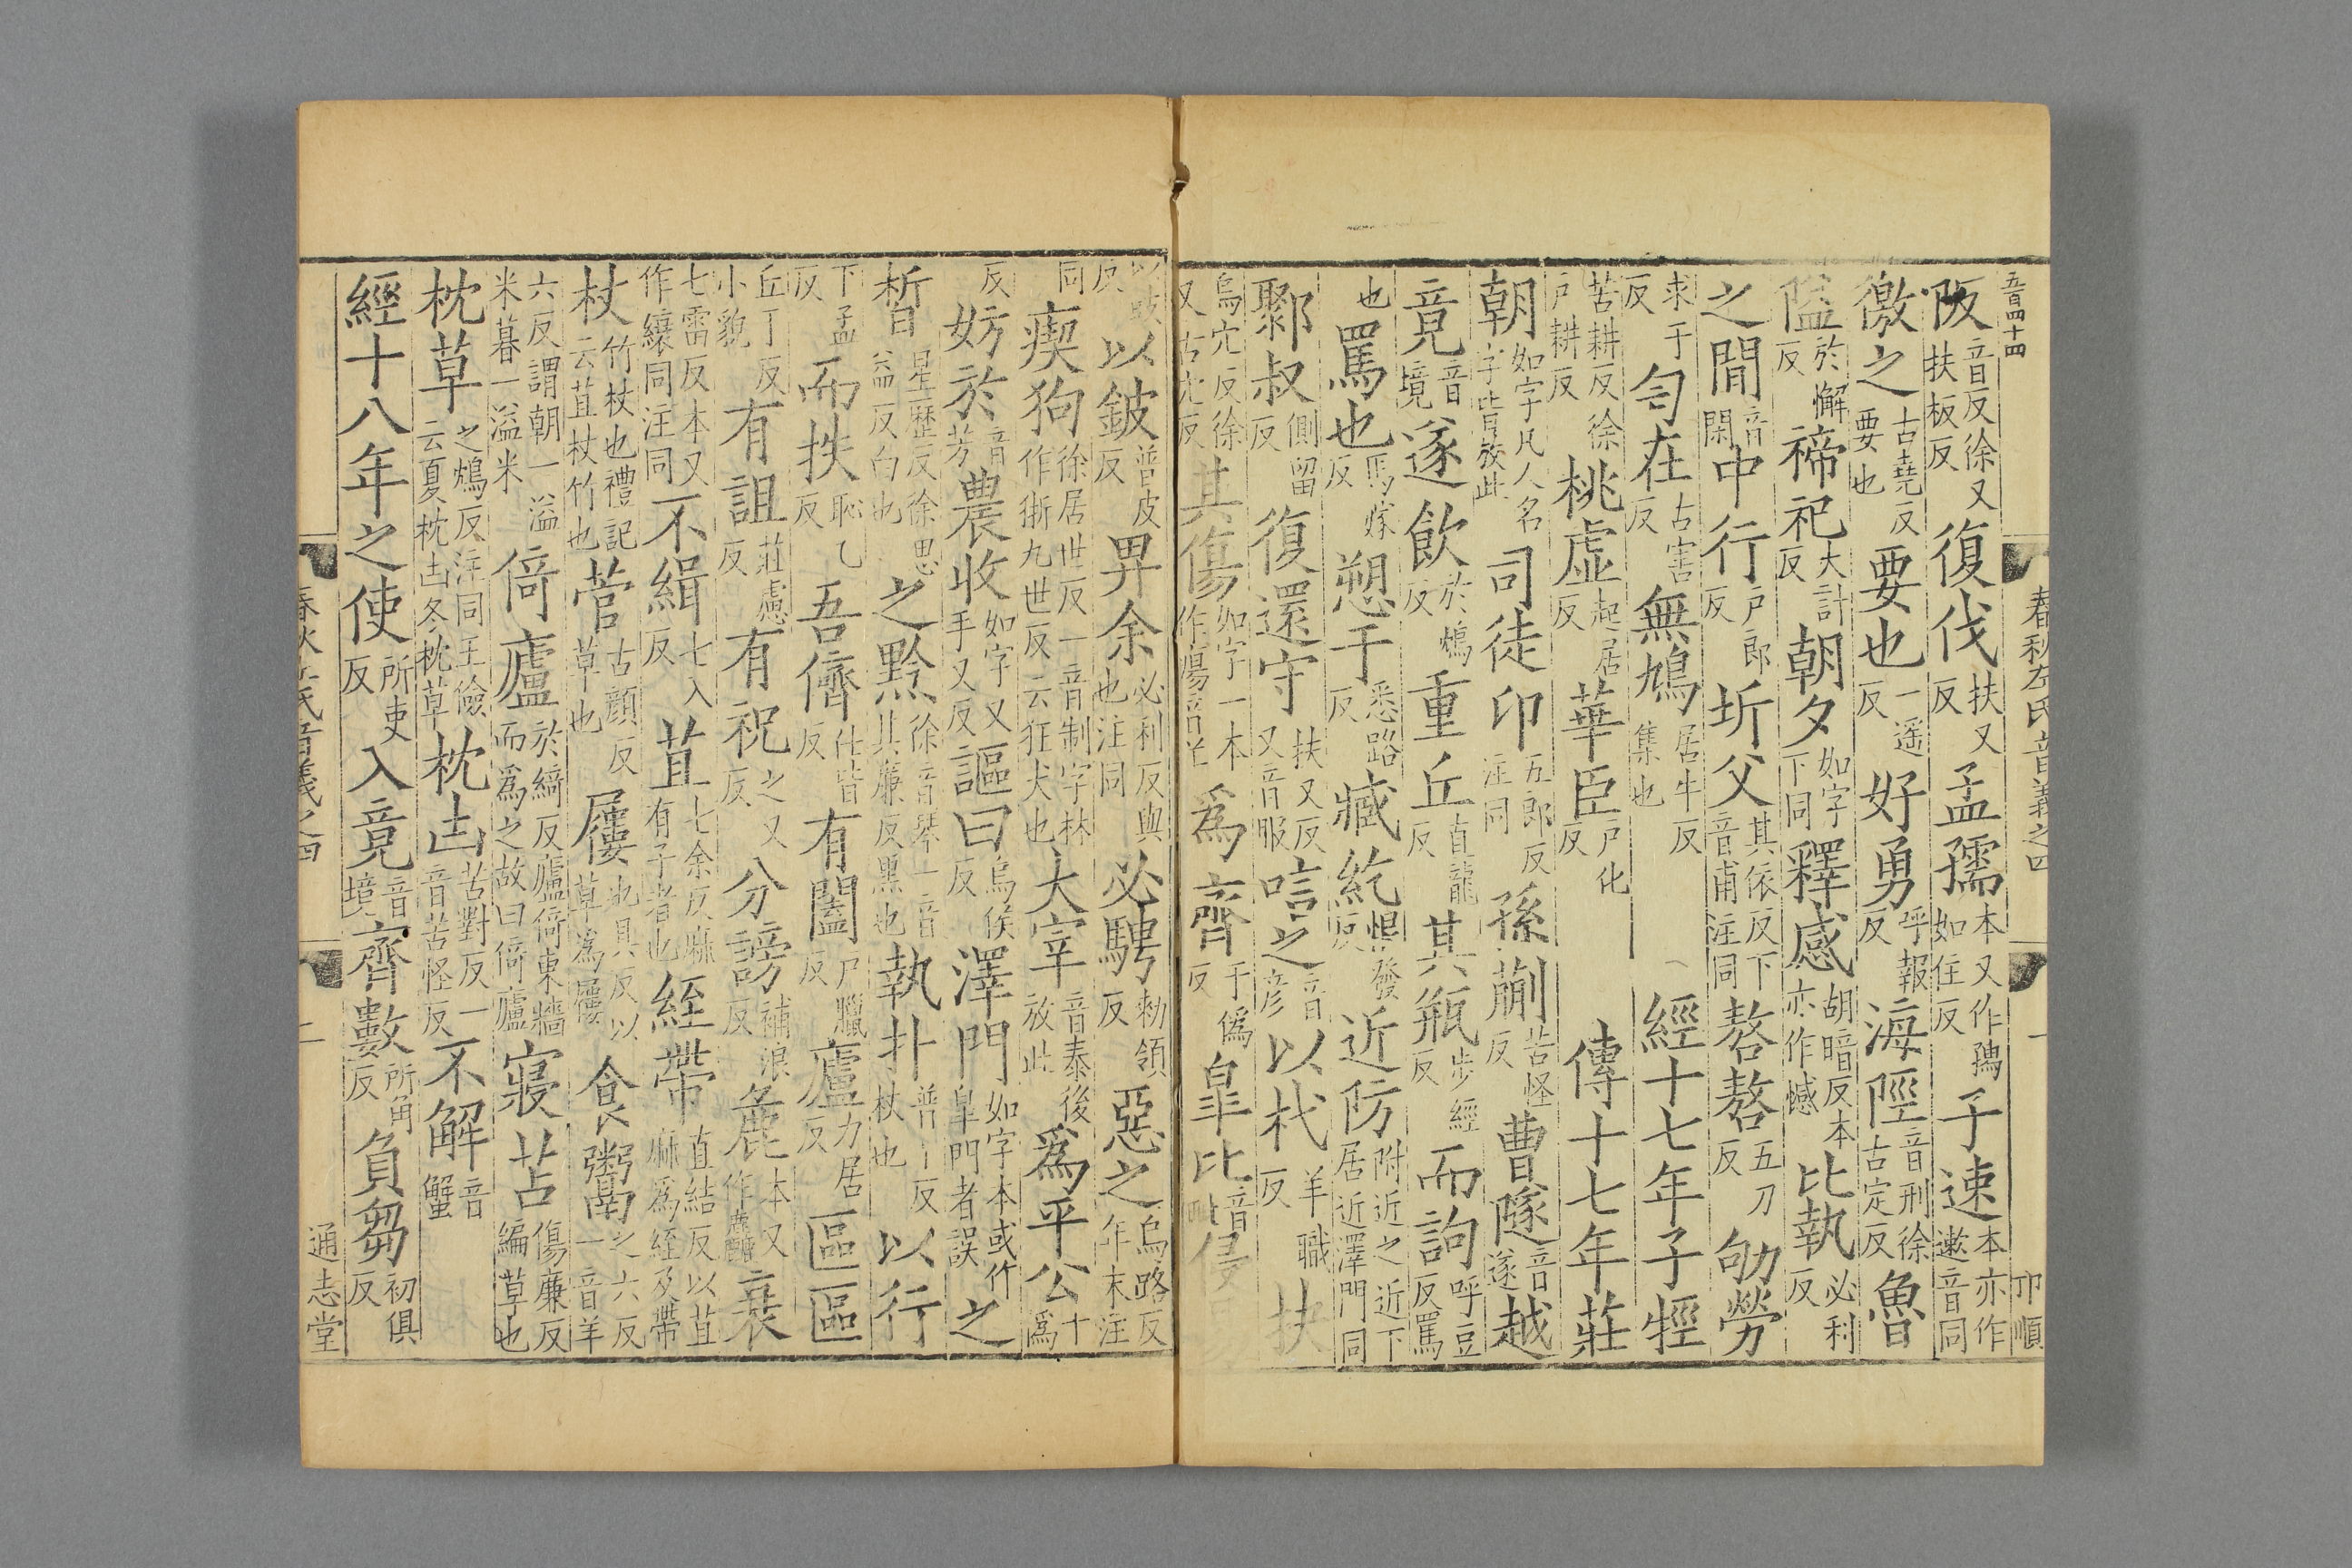 五百四十四
春秋左氏音義之四 一 卭順
阪音反徐又扶板反復伐扶又反孟孺本又作𤣶如住反子速本亦作遫音同
徼之古堯反要也要也一遥反好勇呼報反海陘音刑徐古定反魯
隘於懈反禘祀大計反朝夕如字下同釋感胡暗反本亦作憾比執必利反
之間音閑中行户郎反圻父其依反下音甫注同嗸嗸五刀反劬勞
求于反匄在古害反無鳩居牛反集也 經十七年子牼
苦耕反徐户耕反桃虚起居反華臣户化反 傳十七年莊
朝如字凡人名字皆放此司徒卬五郎反注同孫蒯苦怪反曹隧音遂越
竟音境遂飲於鴆反重丘直龍反其瓶步經反而訽呼豆反罵
也罵也馬嫁反愬于悉路反臧紇恨發反近防附近之近下居近澤門同
郰叔側留反復還守扶又反又音服唁之音彦以杙羊職反抉
烏穴反徐又古穴反其傷如字一本作瘍音羊爲齊于僞反臯比音毗
以鈹普皮反畀余必利反與也注同必騁勑領反惡之烏路反年末注
同瘈狗徐居世反一音制字林作狾九世反云狂犬也大宰音泰後放此爲平公爲十
反妨於音芳農收如字又手又反謳曰烏侯反澤門如字本或作皐門者誤之
晳星歷反徐思益反白也之黔徐音琴一音其廉反黑也執扑普卜反杖也以行
下孟反而抶恥乙反吾儕仕皆反有闔户臘反廬力居反區區
丘于反小貌有詛莊慮反有祝之又反分謗補浪反麁本又作麤衰
七雷反本又作縗同注同不緝七入反苴七余反麻有子者也絰帶直結反以苴麻爲絰及帶
杖竹杖也禮記云苴杖竹也菅古顔反草也屨也具反以草爲屨食鬻之六反一音羊
六反謂朝一溢米暮一溢米倚廬於綺反廬倚東牆而爲之故曰倚廬寢苫傷廉反編草也
枕草之鴆反注同王儉云夏枕凷冬枕草枕凷苦對反一音苦怪反不解音蟹
經十八年之使所吏反入竟音境齊數所角反負芻初俱反
春秋左氏音義之四 二 通志堂